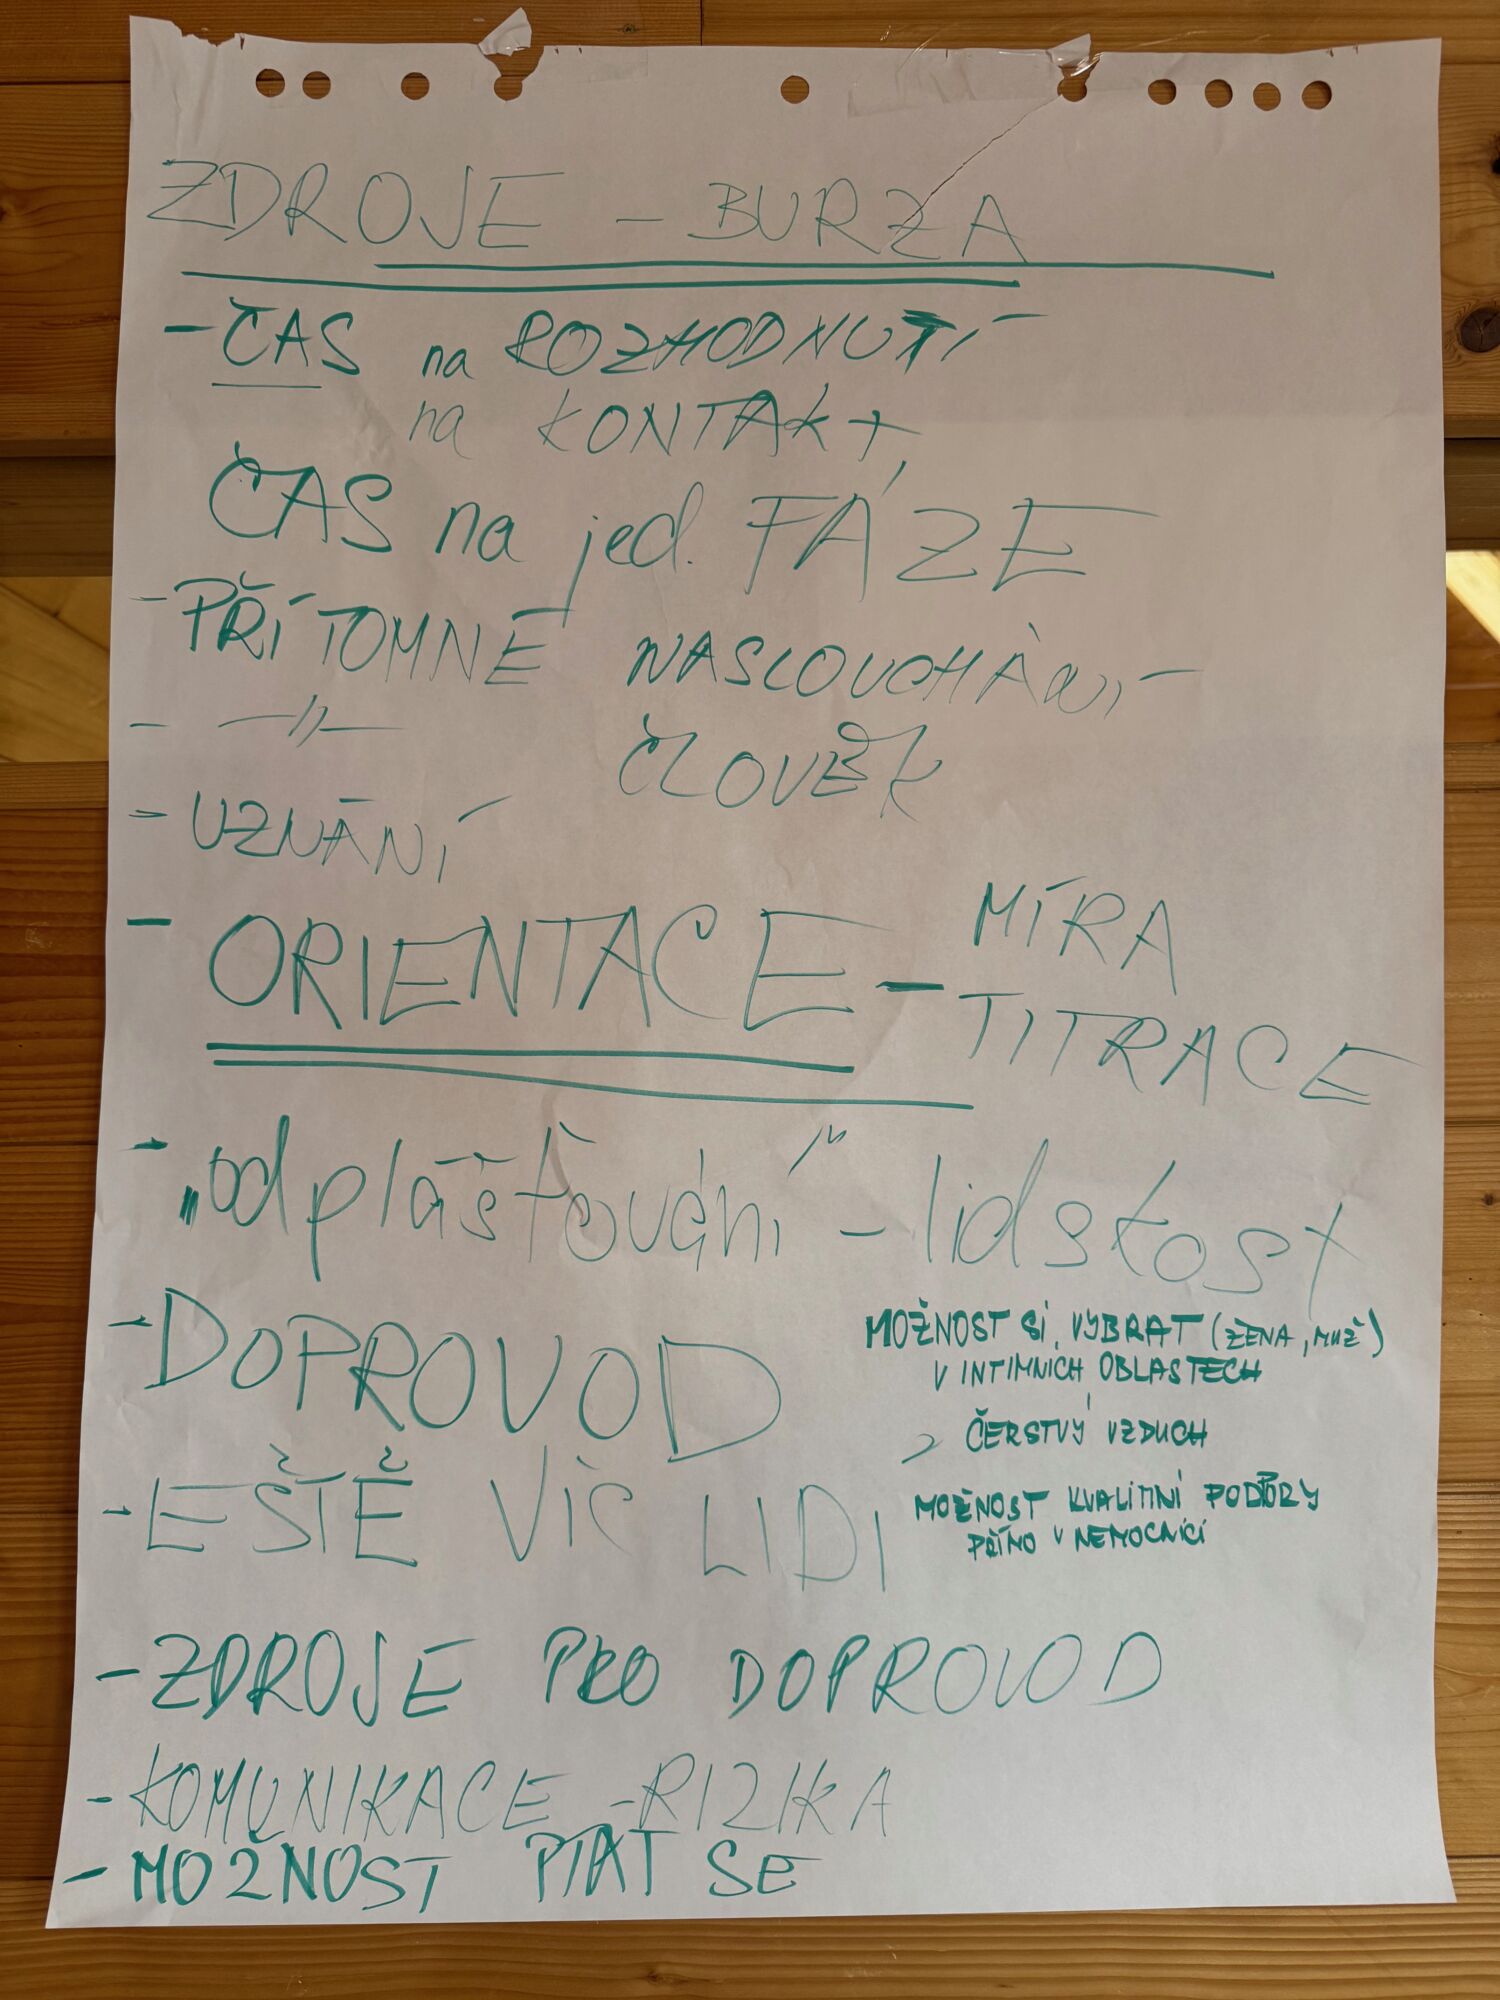 ZDROJE - BURZA
- ČAS na ROZHODNUTÍ
na KONTAKT,
ČAS na jed. FÁZE
- PŘÍTOMNÉ NASLOUCHÁNÍ
- —"— ČLOVĚK
- UZNÁNÍ
- ORIENTACE - MÍRA
TITRACE
- „odplášťování" - lidskost
- DOPROVOD
MOŽNOST SI VYBRAT (ŽENA, MUŽ)
V INTIMNÍCH OBLASTECH
ČERSTVÝ VZDUCH
- EŠTĚ VÍC LIDÍ
MOŽNOST KVALITNÍ PODPORY
PŘÍMO V NEMOCNICI
- ZDROJE PRO DOPROVOD
- KOMUNIKACE - RIZIKA
- MOŽNOST PTÁT SE